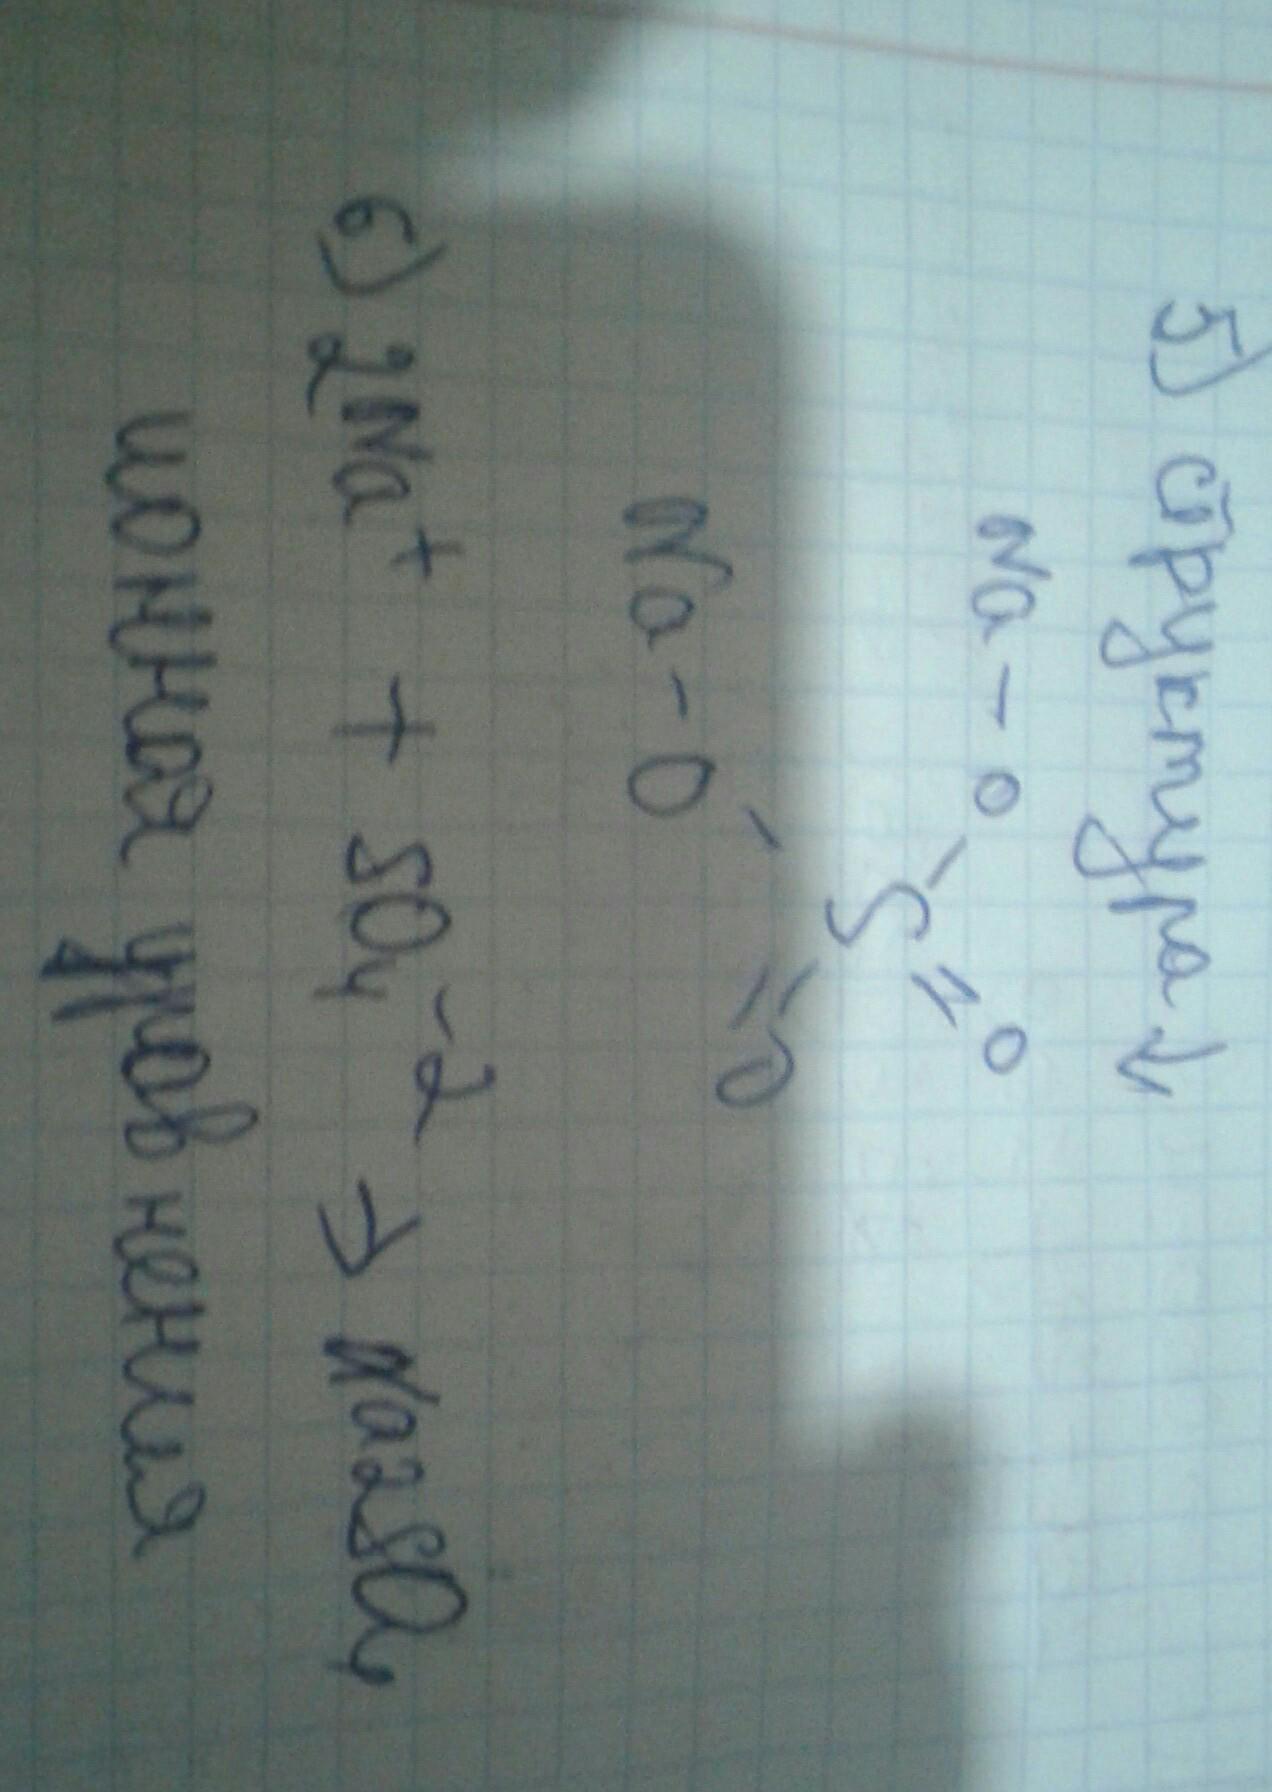 5) структура ↓
Na - O
O
S
Na - O
O
6) 2Na⁺ + SO₄⁻² → Na₂SO₄
ионная уравнения